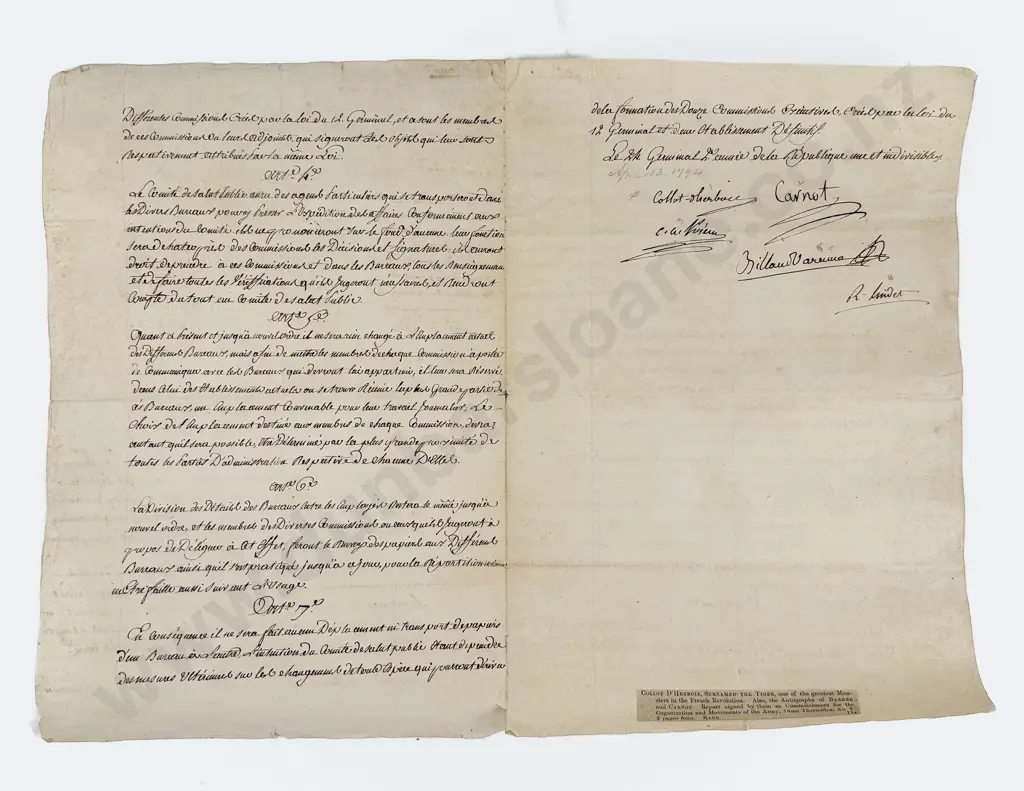 Différentes Commissions Créés par la Loi du 12 Germinal, et à tous les membres
de ces Commissions ou leurs adjoints, qui signeront les objets qui leur sont
Respectivement attribués par la même Loi.
Art.e 4.e
Le Comité de Salut Public aura des agents particuliers qui se transporteront dans
les Divers Bureaux pour y presser L'Expédition des affaires Conformément aux
intentions du Comité
sera de
droit de prendre à ces Commissions et dans les Bureaux, tous les Renseignements
et de faire toutes les Vériffications qu'ils Jugeront nécessaires, et Rendront
Compte du tout au Comité de Salut Public
Art.e 5.e
Quant à présent et jusqu'à nouvel ordre il ne sera rien changé à L'Emplacement actuel
des Différents Bureaux, mais afin de mettre les membres de chaque Commission à portée
de Communiquer avec les Bureaux qui devront lui appartenir, il leur sera Réservé
dans Celui des Etablissements actuels où se trouve Réunie la plus Grande partie de
ces Bureaux, un Emplacement Convenable pour leur travail Journalier, Le
Choix de L'Emplacement destiné aux membres de chaque Commission, sera,
autant qu'il sera possible, Déterminé par la plus grande proximité de
toutes les Parties D'administration Respective de chacune D'Elles.
Art.e 6.e
La Division des Détails des Bureaux entre les Employés Restera la même jusqu'à
nouvel ordre, et les membres des Diverses Commissions ou ceux qu'ils Jugeront à
propos de Déléguer à Cet Effet, feront le Renvoy des papiers aux Différents
Bureaux ainsi qu'il s'est pratiqué jusqu'à ce jour, pour la Répartition
Etre faitte aussi suivant L'Usage.
Art.e 7.e
En Conséquence il ne sera fait aucun Déplacement ni transport de papiers
d'un Bureau à L'autre, L'intention du Comité de Salut public étant de prendre
des mesures Ultérieures sur les changements de toute Espèce qui pourront dériver
de la formation des Douze Commissions Exécutives Créés par la loi du
12 Germinal et de leur Etablissement Définitif.
Le 24 Germinal 2.e année de la République une et indivisible.
Apr. 13. 1794
Collot d'herbois Carnot
Billaud Varenne
R. Lindet
COLLOT D'HERBOIS, SURNAMED THE TIGER, one of the greatest Mon-
sters in the French Revolution. Also, the Autographs of BARRERE
and CARNOT. Report signed by them as Commissioners for the
Organization and Movements of the Army, 16me Thermidor, An 2.
2 pages folio. RARE.